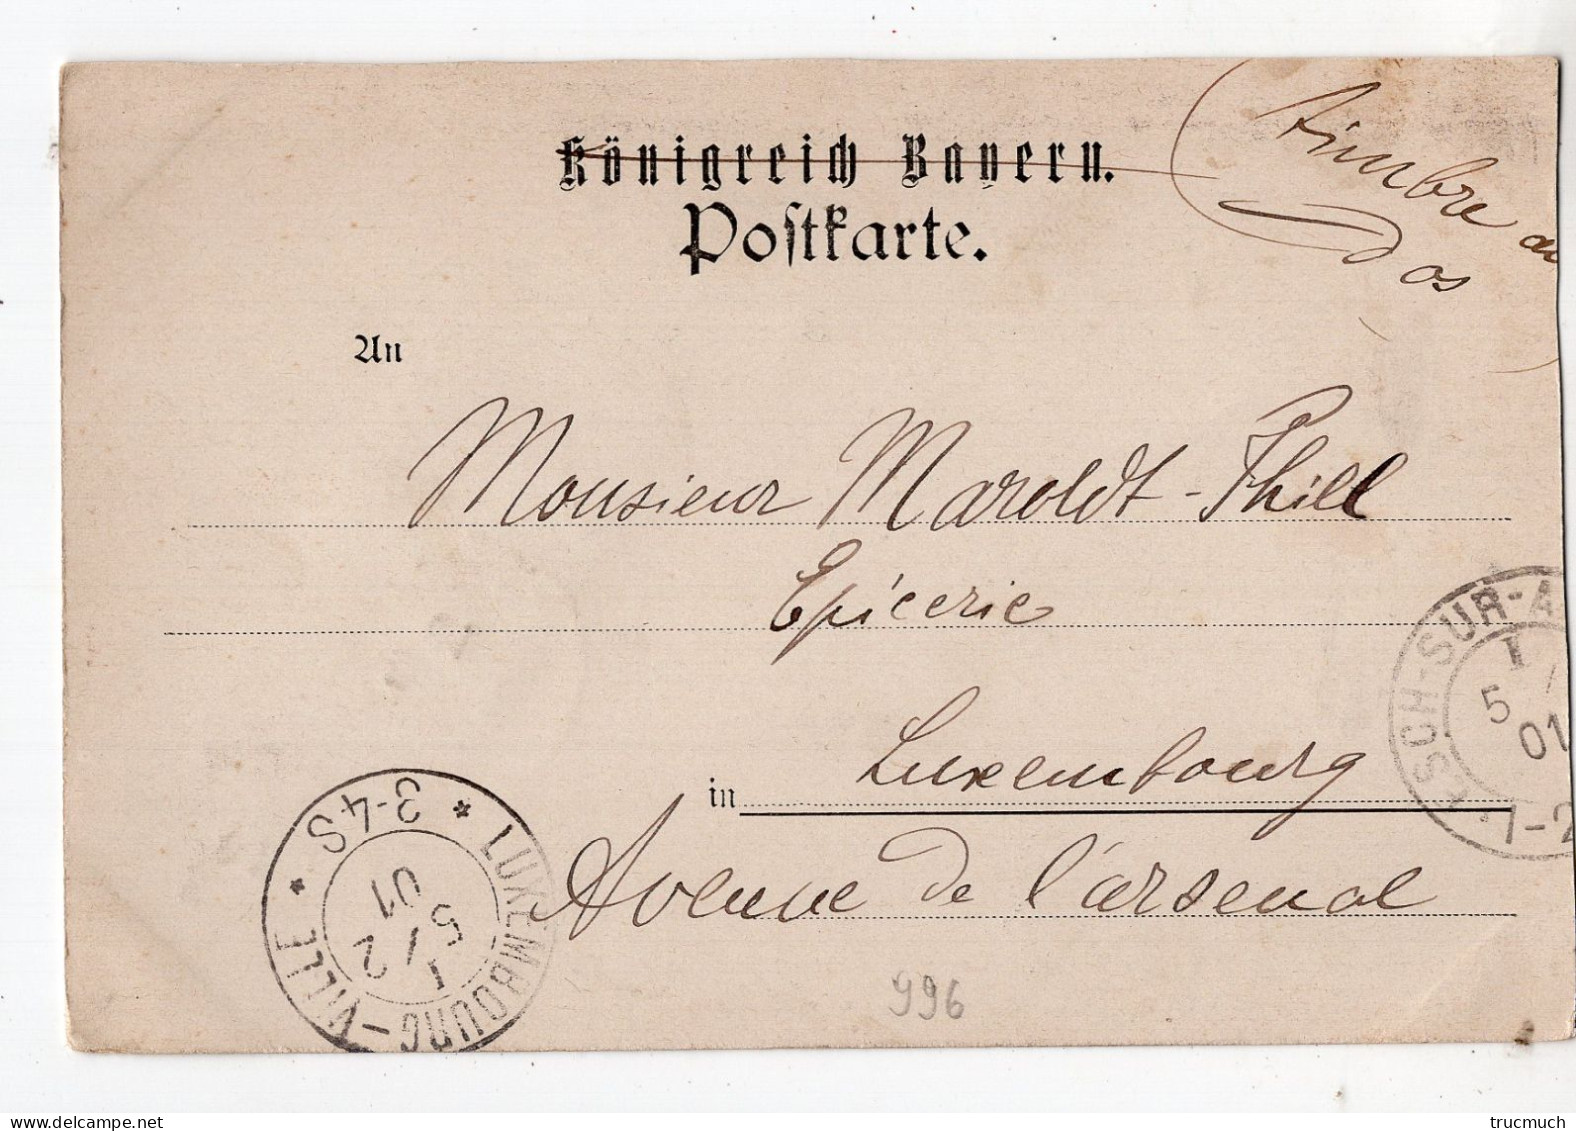 Königreich Bayern.
Postkarte.
Timbre au
Dos
An
Monsieur Maroldt-Thill
Epicerie
in Luxembourg
Avenue de l'arsenal
996
SCH-SUR-A
I
5 /
01
1-2
LUXEMBOURG-VILLE
* 3-4S *
I
5/2
01
trucmuch